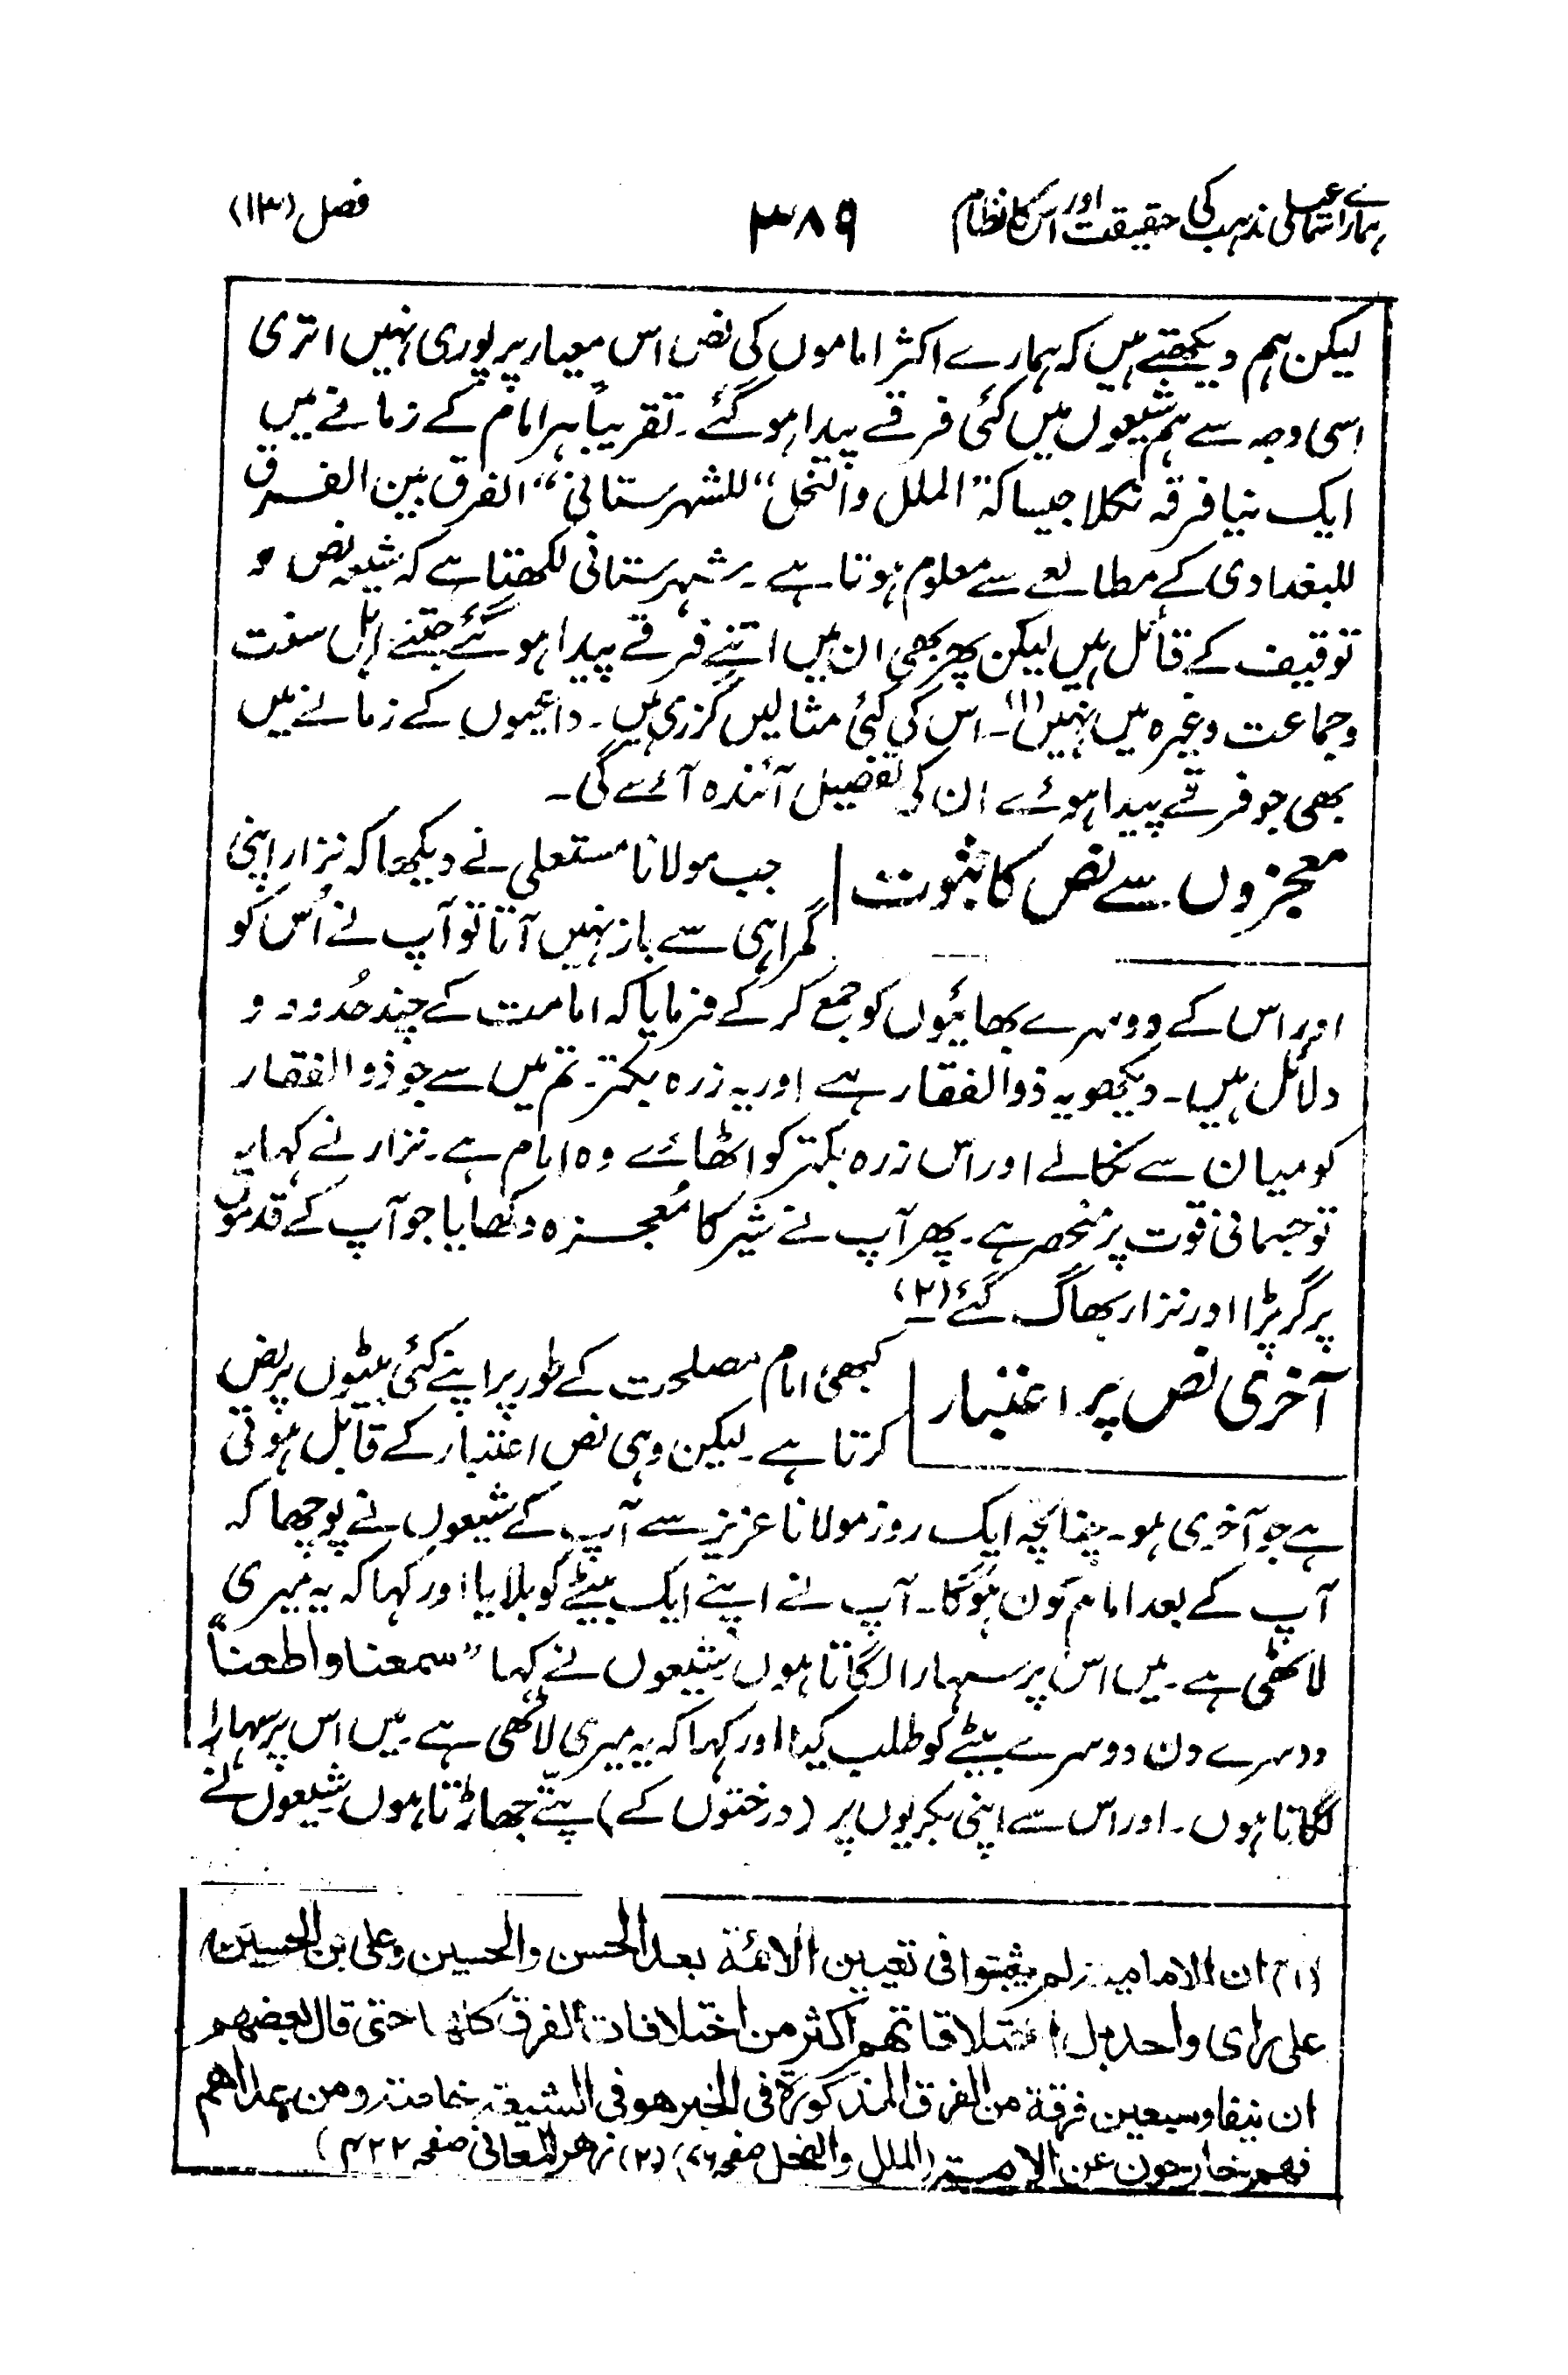 ہمارے اسماعیلی مذہب کی حقیقت اور اس کا نظام ۳۸۹ فصل (۱۳)
لیکن ہم دیکھتے ہیں کہ ہمارے اکثر اماموں کی نص اس معیار پر پوری نہیں اتری
اسی وجہ سے ہم شیعوں میں کئی فرقے پیدا ہو گئے۔ تقریباً ہر امام کے زمانے میں
ایک نیا فرقہ نکلا جیسا کہ "الملل والنحل" للشہرستانی "الفرق بین الفرق
للبغدادی کے مطالعے سے معلوم ہوتا ہے۔ شہرستانی لکھتا ہے کہ شیعہ نص و
توقیف کے قائل ہیں لیکن پھر بھی ان میں اتنے فرقے پیدا ہو گئے جتنے اہل سنت
وجماعت وغیرہ میں نہیں (۱)۔ اس کی کئی مثالیں گزری ہیں۔ داعیوں کے زمانے میں
بھی جو فرقے پیدا ہوئے ان کی تفصیل آئندہ آئے گی۔
معجزوں سے نص کا ثبوت جب مولانا مستعلی نے دیکھا کہ نزار اپنی
گمراہی سے باز نہیں آتا تو آپ نے اُس کو
اور اس کے دوسرے بھائیوں کو جمع کر کے فرمایا کہ امامت کے چند حُدود و
دلائل ہیں۔ دیکھو یہ ذوالفقار ہے اور یہ زرہ بکتر۔ تم میں سے جو ذوالفقار
کو میان سے نکالے اور اس زرہ بکتر کو اٹھائے وہ امام ہے۔ نزار نے کہا یہ
تو جسمانی قوت پر منحصر ہے۔ پھر آپ نے شیر کا مُعجزہ دکھایا جو آپ کے قدموں
پر گر پڑا اور نزار بھاگ گئے (۲)
آخری نص پر اعتبار کبھی امام مصلحت کے طور پر اپنے کئی بیٹوں پر نص
کرتا ہے۔ لیکن وہی نص اعتبار کے قابل ہوتی
ہے جو آخری ہو۔ چنانچہ ایک روز مولانا عزیز سے آپ کے شیعوں نے پوچھا کہ
آپ کے بعد امام کون ہوگا۔ آپ نے اپنے ایک بیٹے کو بلایا اور کہا کہ یہ میری
لاٹھی ہے۔ میں اس پر سہارا لگاتا ہوں شیعوں نے کہا "سمعنا واطعنا"
دوسرے دن دوسرے بیٹے کو طلب کیا اور کہا کہ یہ میری لاٹھی ہے۔ میں اس پر سہارا
لگاتا ہوں۔ اور اس سے اپنی بکریوں پر (درختوں کے) پتّے جھاڑتا ہوں شیعوں نے
(۱) ان الامامیۃ لم یثبتوا فی تعیین الائمۃ بعد الحسن والحسین وعلی بن الحسین
علی رای واحد بل اختلافاتھم اکثر من اختلافات الفرق کلھا حتی قال بعضھم
ان نیفا وسبعین فرقۃ من الفرق المذکورۃ فی الخبر ھو فی الشیعۃ خاصۃ ومن عداھم
فھم خارجون عن الامۃ (الملل والنحل صفحہ ۷۶) (۲) زھر المعانی صفحہ ۴۲۲)